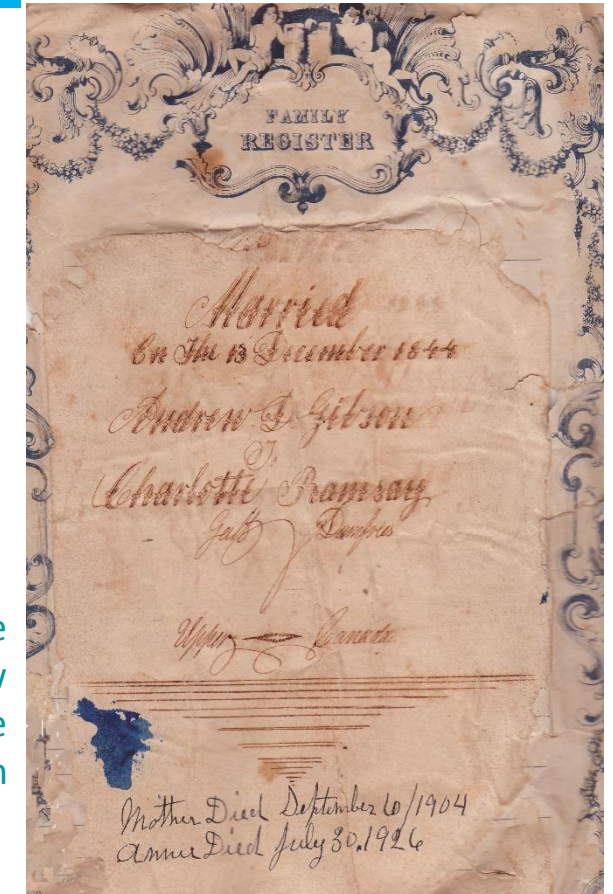 FAMILY
REGISTER
Married
On The 13 December 1844
Andrew D Gibson
To
Charlotte Ramsay
Galt Dumfries
Upper Canada
Mother Died September 6/1904
Annie Died July 30. 1926
e
y
e
n